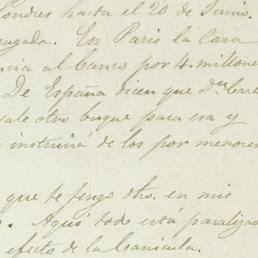 Londres hasta el 20 de Junio.
engada. En Paris la casa
ncia al banco por 4. millone
De España dicen que Dn Carl
sale otro buque para esa y
instruirá de los por menores
que te tengo dho. en mis
. Aqui todo está paraliza
efecto de la Canícula.